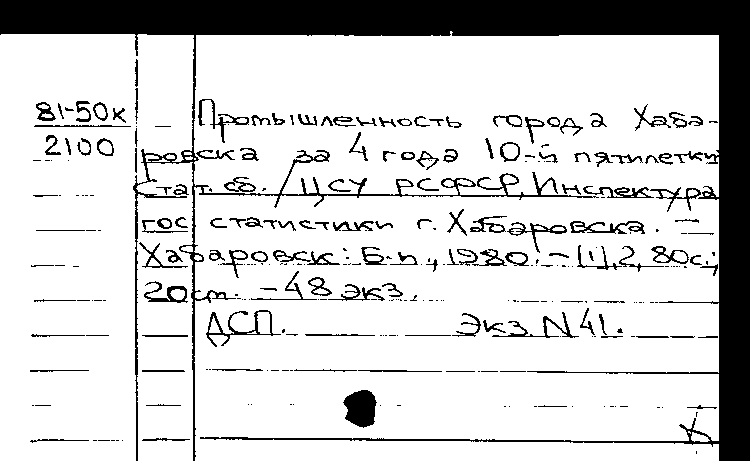 81-50к
2100
Промышленность города Хаба-
ровска за 4 года 10-й пятилетки
Стат. сб. / ЦСУ РСФСР, Инспектура
гос статистики г. Хабаровска. —
Хабаровск: Б.и., 1980. – [1], 2, 80с.;
20см. – 48 экз.
ДСП. Экз. N 41.
К